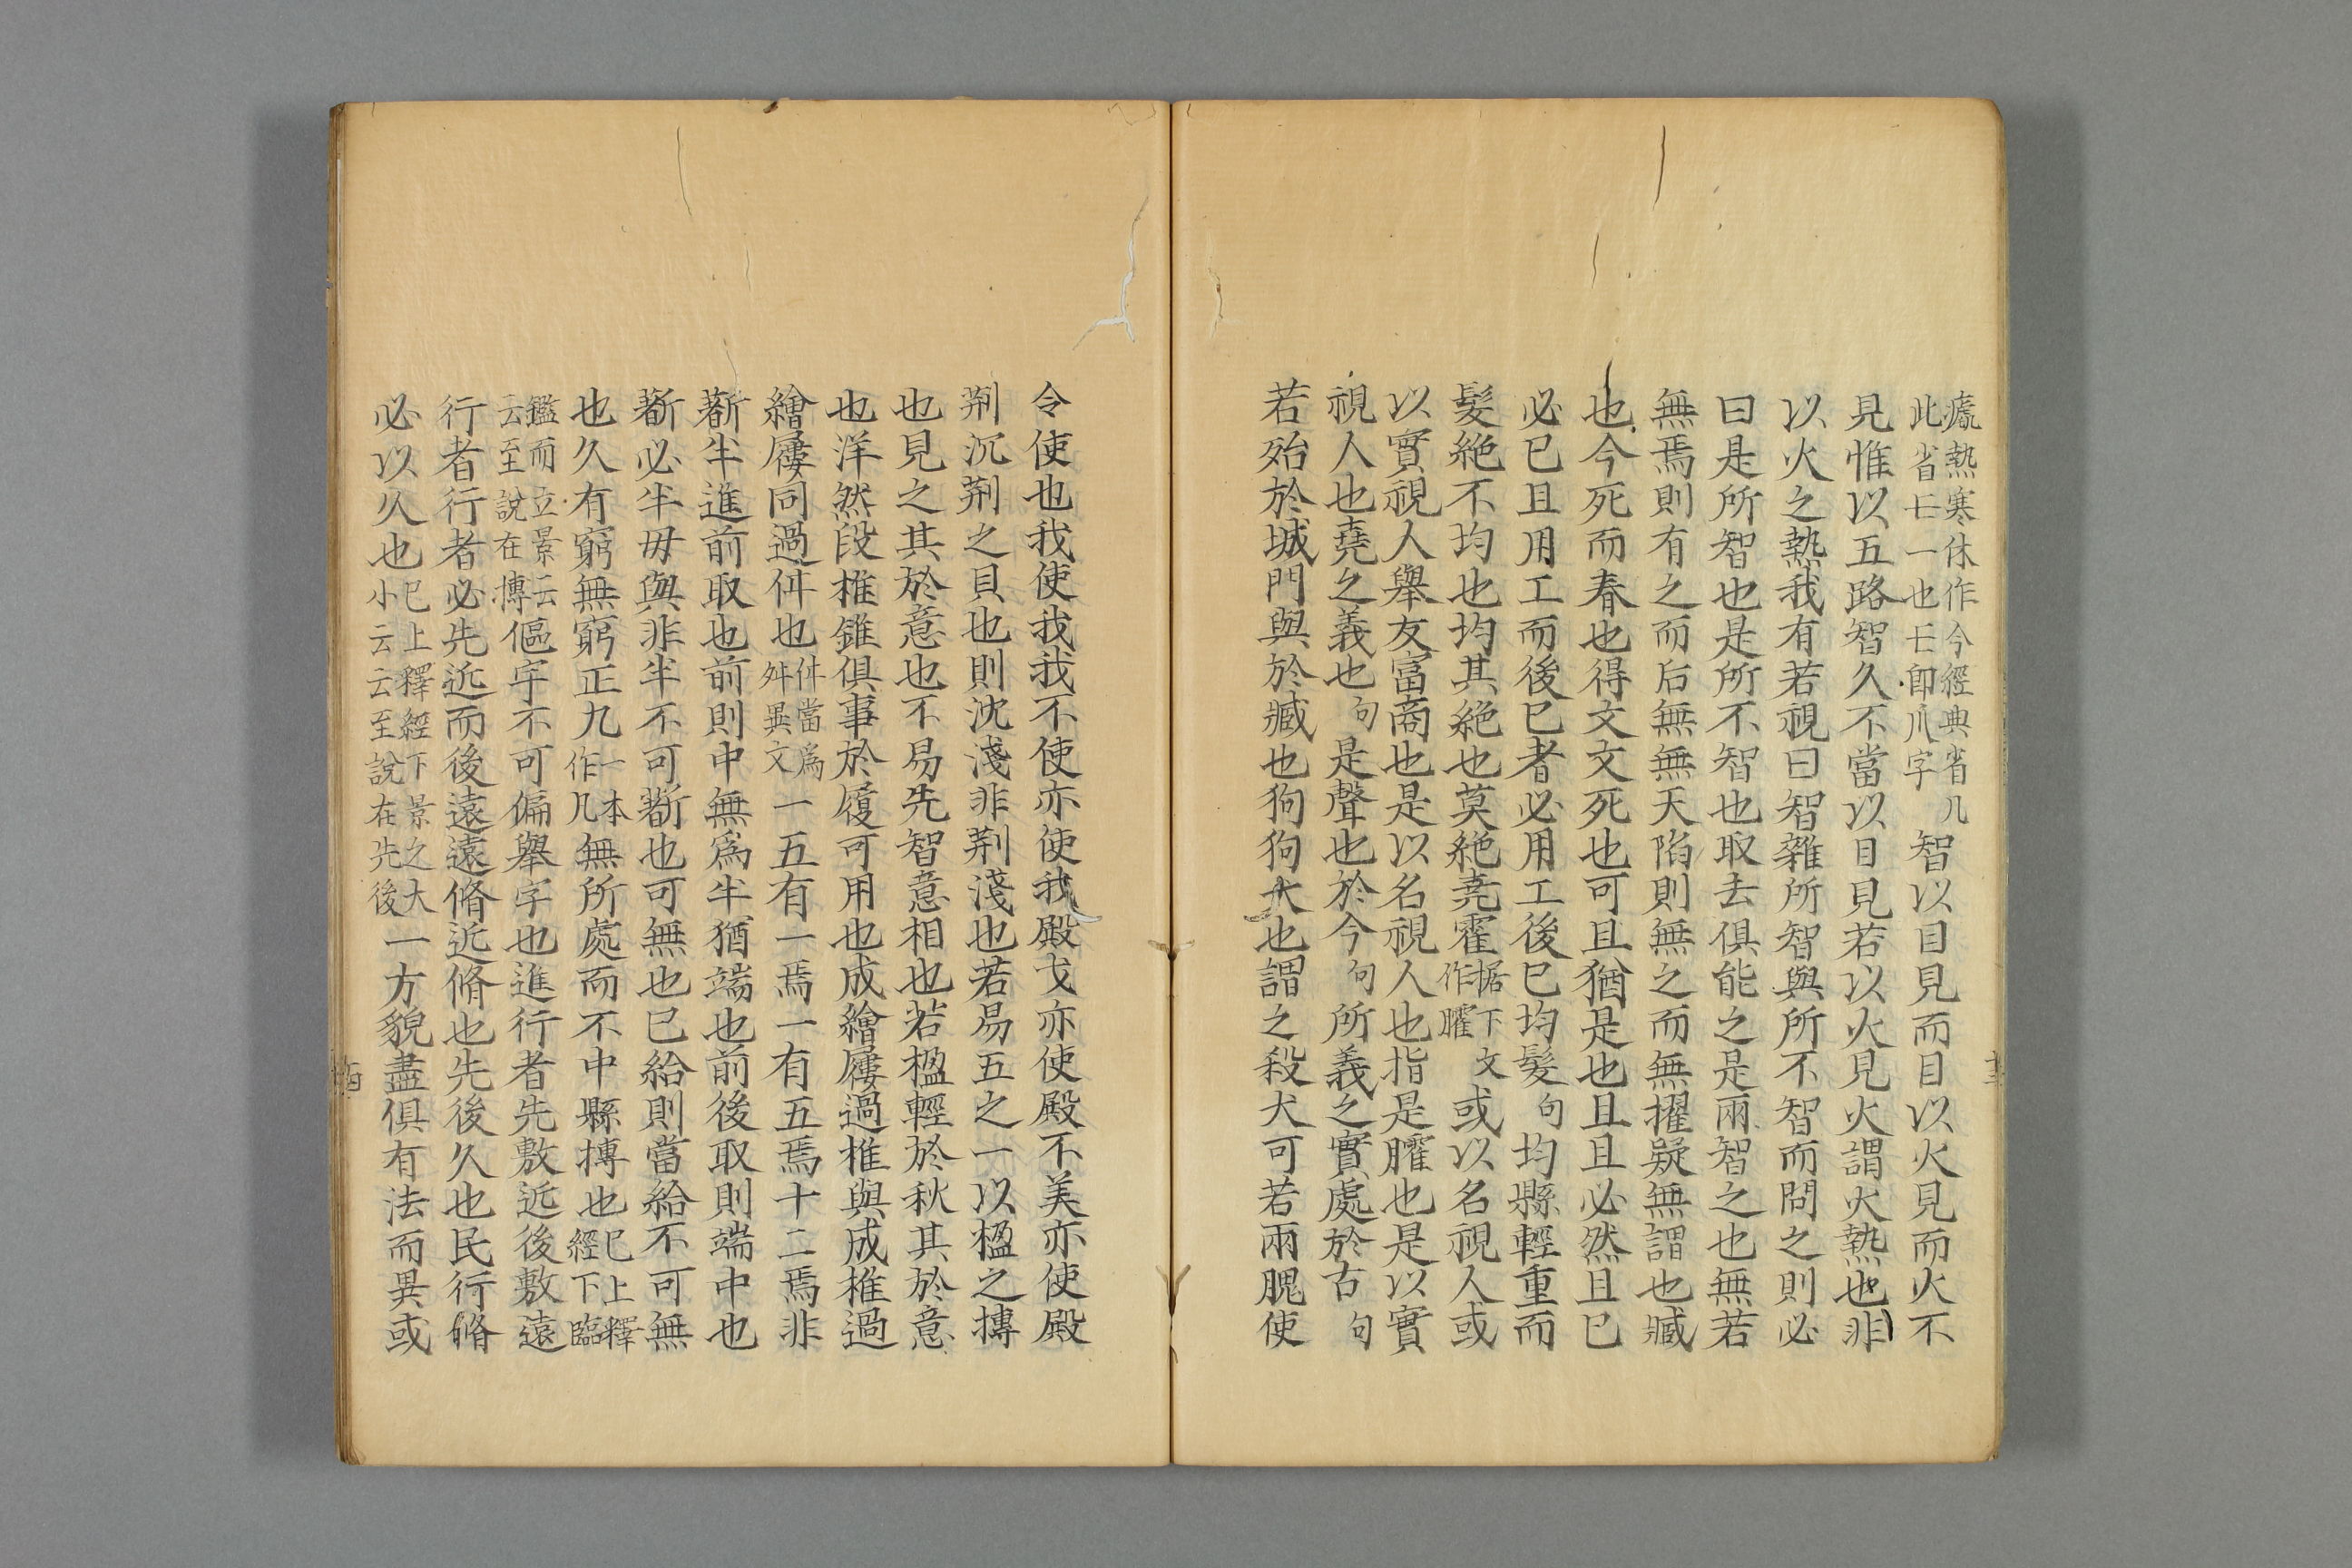 瘧熱寒休作今經典省几
此省𠂇一也𠂇卽爪字
智以目見而目以火見而火不
見惟以五路智久不當以目見若以火見火謂火熱也非
以火之熱我有若視曰智雜所智與所不智而問之則必
曰是所智也是所不智也取去俱能之是兩智之也無若
無焉則有之而后無無天陷則無之而無擢疑無謂也臧
也今死而春也得文文死也可且猶是也且且必然且已
必已且用工而後已者必用工後已均髮句均縣輕重而
髮絶不均也均其絶也莫絶堯霍据下文作臛或以名視人或
以實視人舉友富商也是以名視人也指是臛也是以實
視人也堯之義也句是聲也於今句所義之實處於古句
若殆於城門與於臧也狗狗犬也謂之殺犬可若兩膍使
令使也我使我我不使亦使我殿戈亦使殿不美亦使殿
荆沉荆之貝也則沈淺非荆淺也若易五之一以楹之摶
也見之其於意也不易先智意相也若楹輕於秋其於意
也洋然段椎錐俱事於履可用也成繪屨過椎與成椎過
繪屨同過仵也仵當爲舛異文一五有一焉一有五焉十二焉非
斱半進前取也前則中無爲半猶端也前後取則端中也
斱必半毋與非半不可斱也可無也已給則當給不可無
也久有窮無窮正九一本作凡無所處而不中縣摶也已上釋經下臨
鑑而立景云云至說在摶傴宇不可偏舉字也進行者先敷近後敷遠
行者行者必先近而後遠遠脩近脩也先後久也民行脩
必以久也已上釋經下景之大小云云至說在先後一方貌盡俱有法而異或